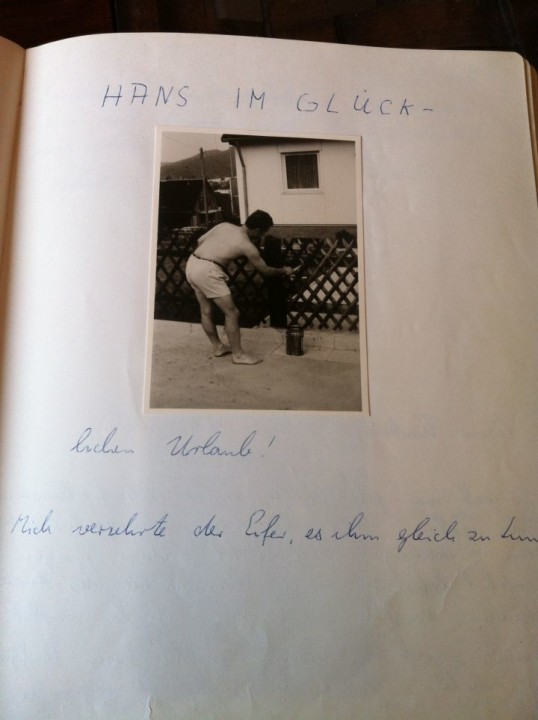 HANS IM GLÜCK-
lichen Urlaub!
Mich verzehrte der Eifer, es ihm gleich zu tun